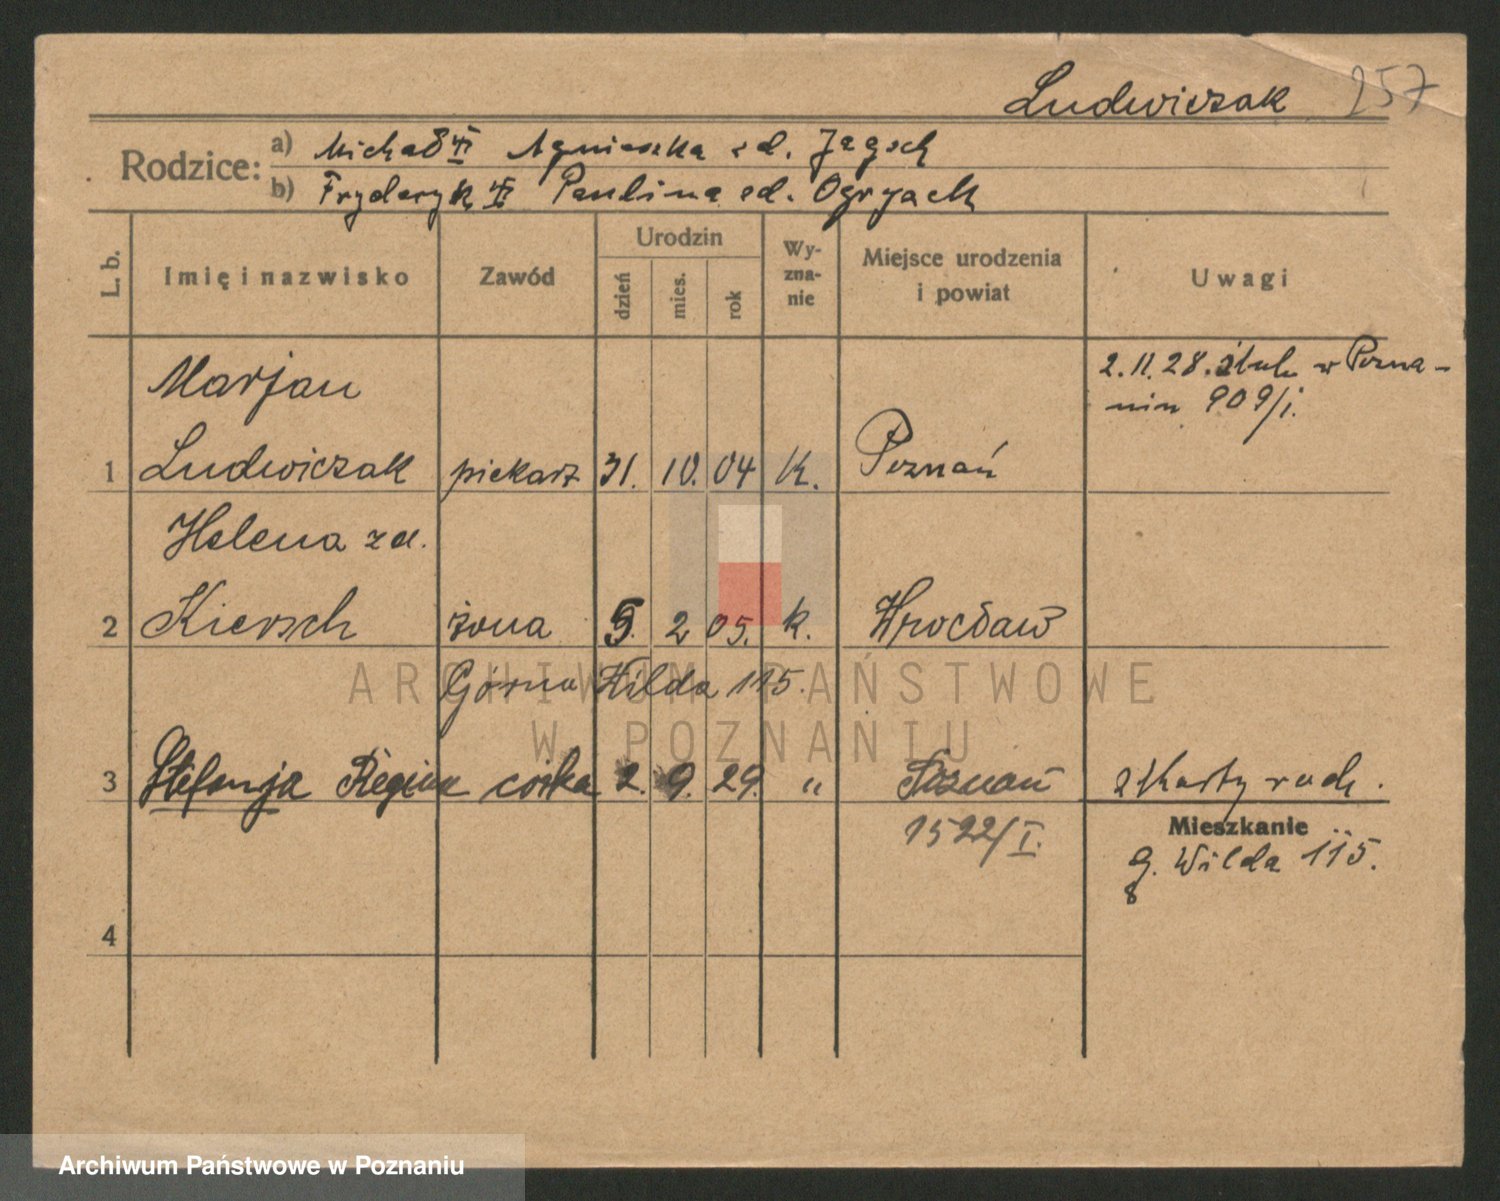 Ludwiczak 257
Rodzice: a) Michał Agnieszka zd. Jagsch
b) Fryderyk Paulina zd. Ogryack
L. b. Imię i nazwisko Zawód Urodzin dzień mies. rok Wyznanie Miejsce urodzenia i powiat Uwagi
2.11.28. ślub w Pozna-
niu 909/I.
Marjan
1 Ludwiczak piekarz 31. 10. 04 K. Poznań
Helena zd.
2 Kiersch żona 5. 2 05. k. Wrocław
Górna Wilda 115.
3 Stefanja Regina córka 2. 9. 29. " Poznań z karty rodz.
1522/I.
Mieszkanie
G. Wilda 115.
8
4
ARCHIWUM PAŃSTWOWE
W POZNANIU
Archiwum Państwowe w Poznaniu